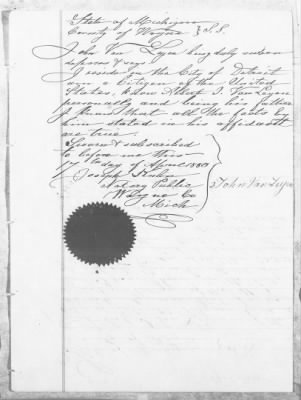 State of Michigan
County of Wayne } S.S.
John Van being duly sworn
deposes & says
I reside in the City of Detroit
am a citizen of the United
States, know Albert J. Van
personally and being his father
I know that all the facts by
him stated in his affidavit
are true.
Sworn & subscribed
to before me this
day of April 1880
Joseph
Notary Public
Wayne Co
Mich
John Van